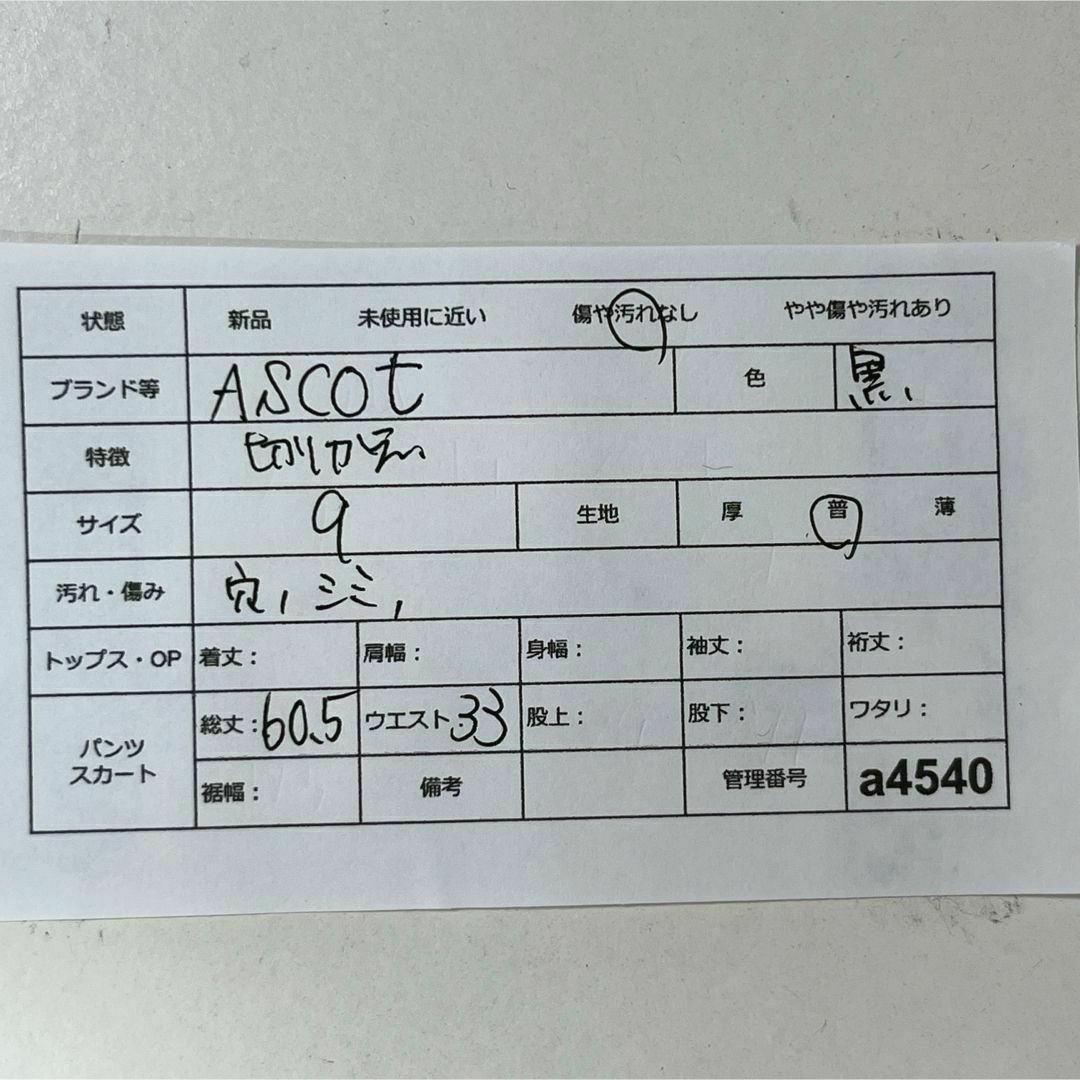 状態 新品 未使用に近い 傷や汚れなし やや傷や汚れあり
ブランド等 ASCOT 色 黒、
特徴 切りかえ
サイズ 9 生地 厚 普 薄
汚れ・傷み 穴、シミ、
トップス・OP 着丈： 肩幅： 身幅： 袖丈： 裄丈：
パンツ スカート 総丈：60.5 ウエスト 33 股上： 股下： ワタリ：
裾幅： 備考 管理番号 a4540